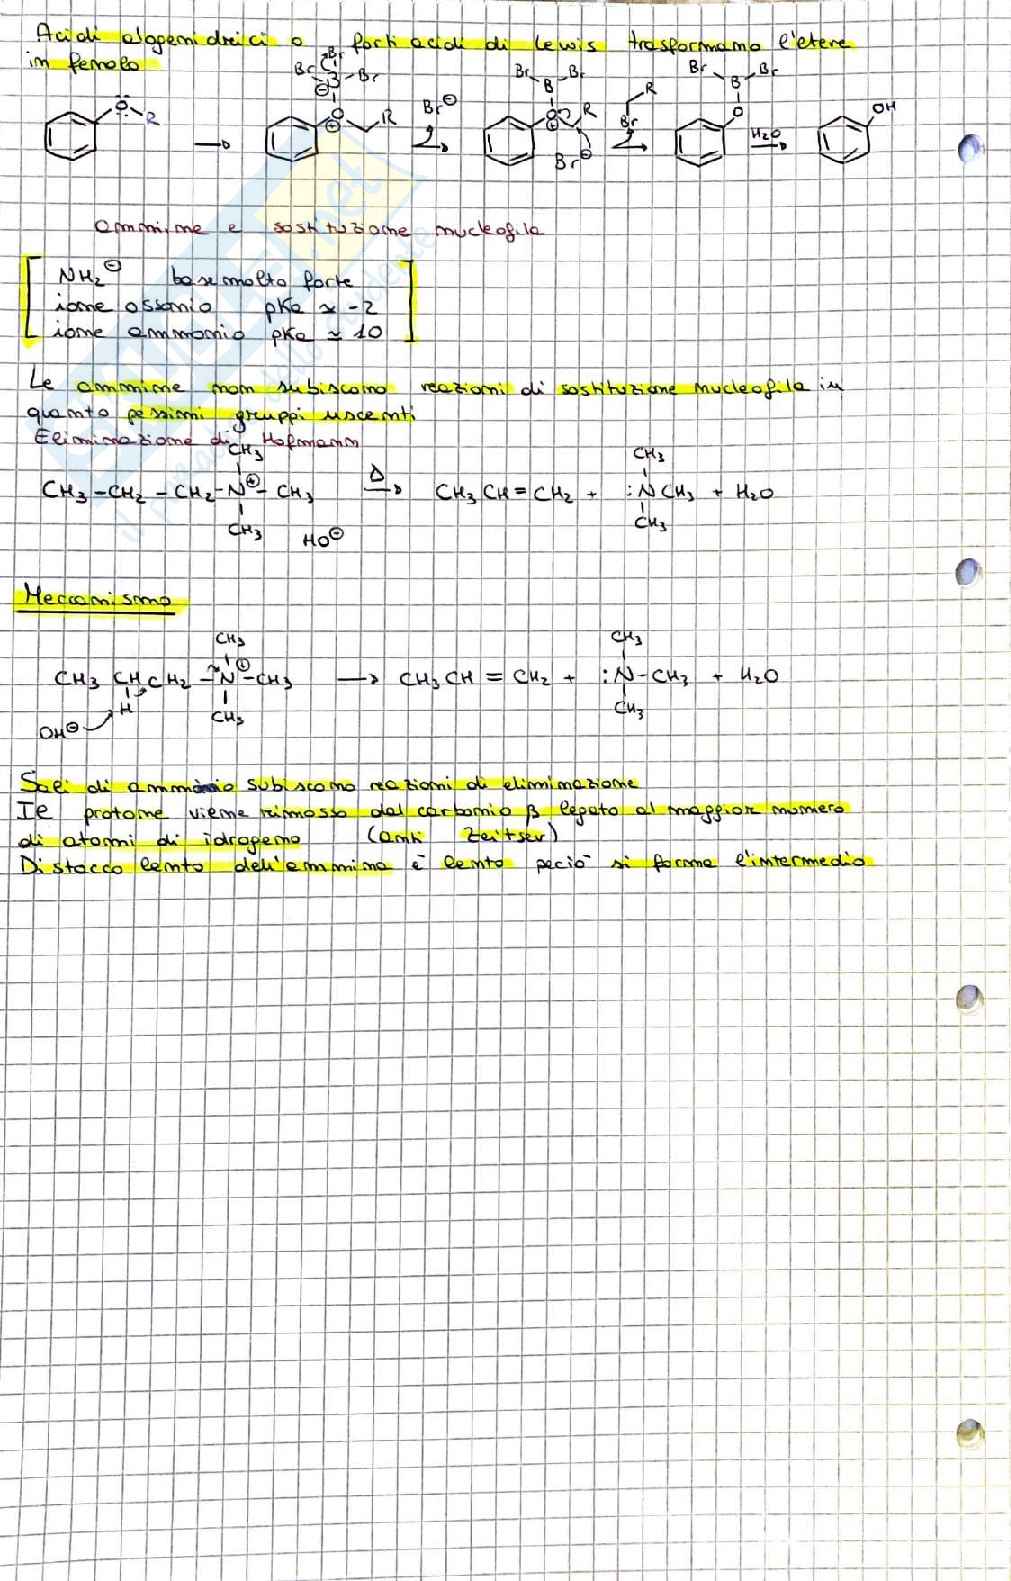 Acidi alogenidrici o forti acidi di Lewis trasformano l'etere
in fenolo
Br
Br B Br
Br Br
B
R
Br Br
B
O R
O R
Br⊖
O R
Br⊖
Br
O
H₂O
OH
ammine e sostituzione nucleofila
NH₂⊖ base molto forte
ione ossonio pKa ≃ -2
ione ammonio pKa ≃ 10
Le ammine non subiscono reazioni di sostituzione nucleofila in
quanto pessimi gruppi uscenti
Eliminazione di Hofmann
CH₃ CH₃
CH₃-CH₂-CH₂-N⊕-CH₃ Δ CH₃CH=CH₂ + :NCH₃ + H₂O
CH₃ HO⊖ CH₃
Meccanismo
CH₃ CH₃
CH₃CHCH₂-N⊕-CH₃ → CH₃CH=CH₂ + :N-CH₃ + H₂O
H CH₃ CH₃
OH⊖
Sali di ammonio subiscono reazioni di eliminazione
Il protone viene rimosso dal carbonio β legato al maggior numero
di atomi di idrogeno (anti Zeitsev)
Distacco lento dell'ammina è lento peciò si forma l'intermedio